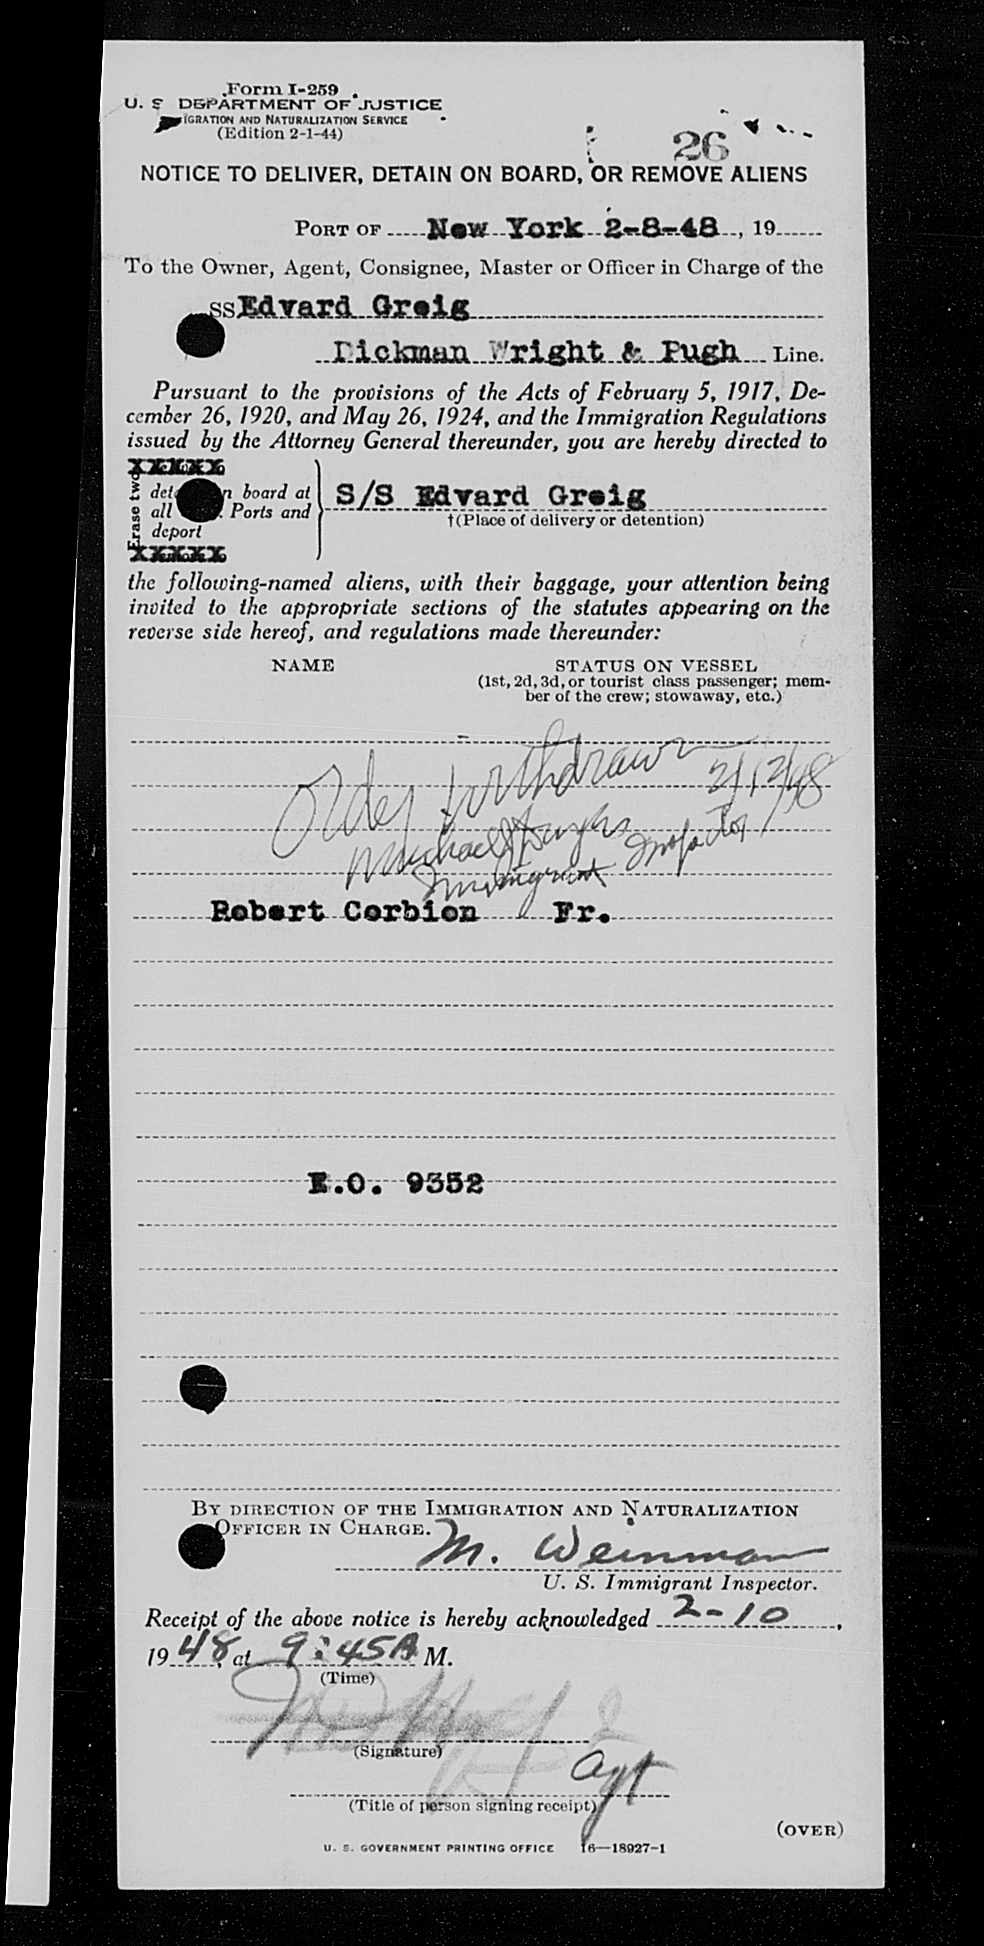 Form I-259
U. S DEPARTMENT OF JUSTICE
IGRATION AND NATURALIZATION SERVICE
(Edition 2-1-44)
26
NOTICE TO DELIVER, DETAIN ON BOARD, OR REMOVE ALIENS
PORT OF New York 2-8-48, 19
To the Owner, Agent, Consignee, Master or Officer in Charge of the
SS Edvard Greig
Dickman Wright & Pugh Line.
Pursuant to the provisions of the Acts of February 5, 1917, De-
cember 26, 1920, and May 26, 1924, and the Immigration Regulations
issued by the Attorney General thereunder, you are hereby directed to
XXXXX
Erase two
det n board at
all . Ports and
deport
XXXXX
S/S Edvard Greig
†(Place of delivery or detention)
the following-named aliens, with their baggage, your attention being
invited to the appropriate sections of the statutes appearing on the
reverse side hereof, and regulations made thereunder:
NAME
STATUS ON VESSEL
(1st, 2d, 3d, or tourist class passenger; mem-
ber of the crew; stowaway, etc.)
Order withdrawn 2/12/48
Michael J
Immigrant Inspector
Robert Corbion Fr.
E.O. 9352
BY DIRECTION OF THE IMMIGRATION AND NATURALIZATION
OFFICER IN CHARGE.
M. Weinman
U. S. Immigrant Inspector.
Receipt of the above notice is hereby acknowledged 2-10,
1948, at 9:45A M.
(Time)
(Signature)
Agt
(Title of person signing receipt)
(OVER)
U. S. GOVERNMENT PRINTING OFFICE 16—18927-1